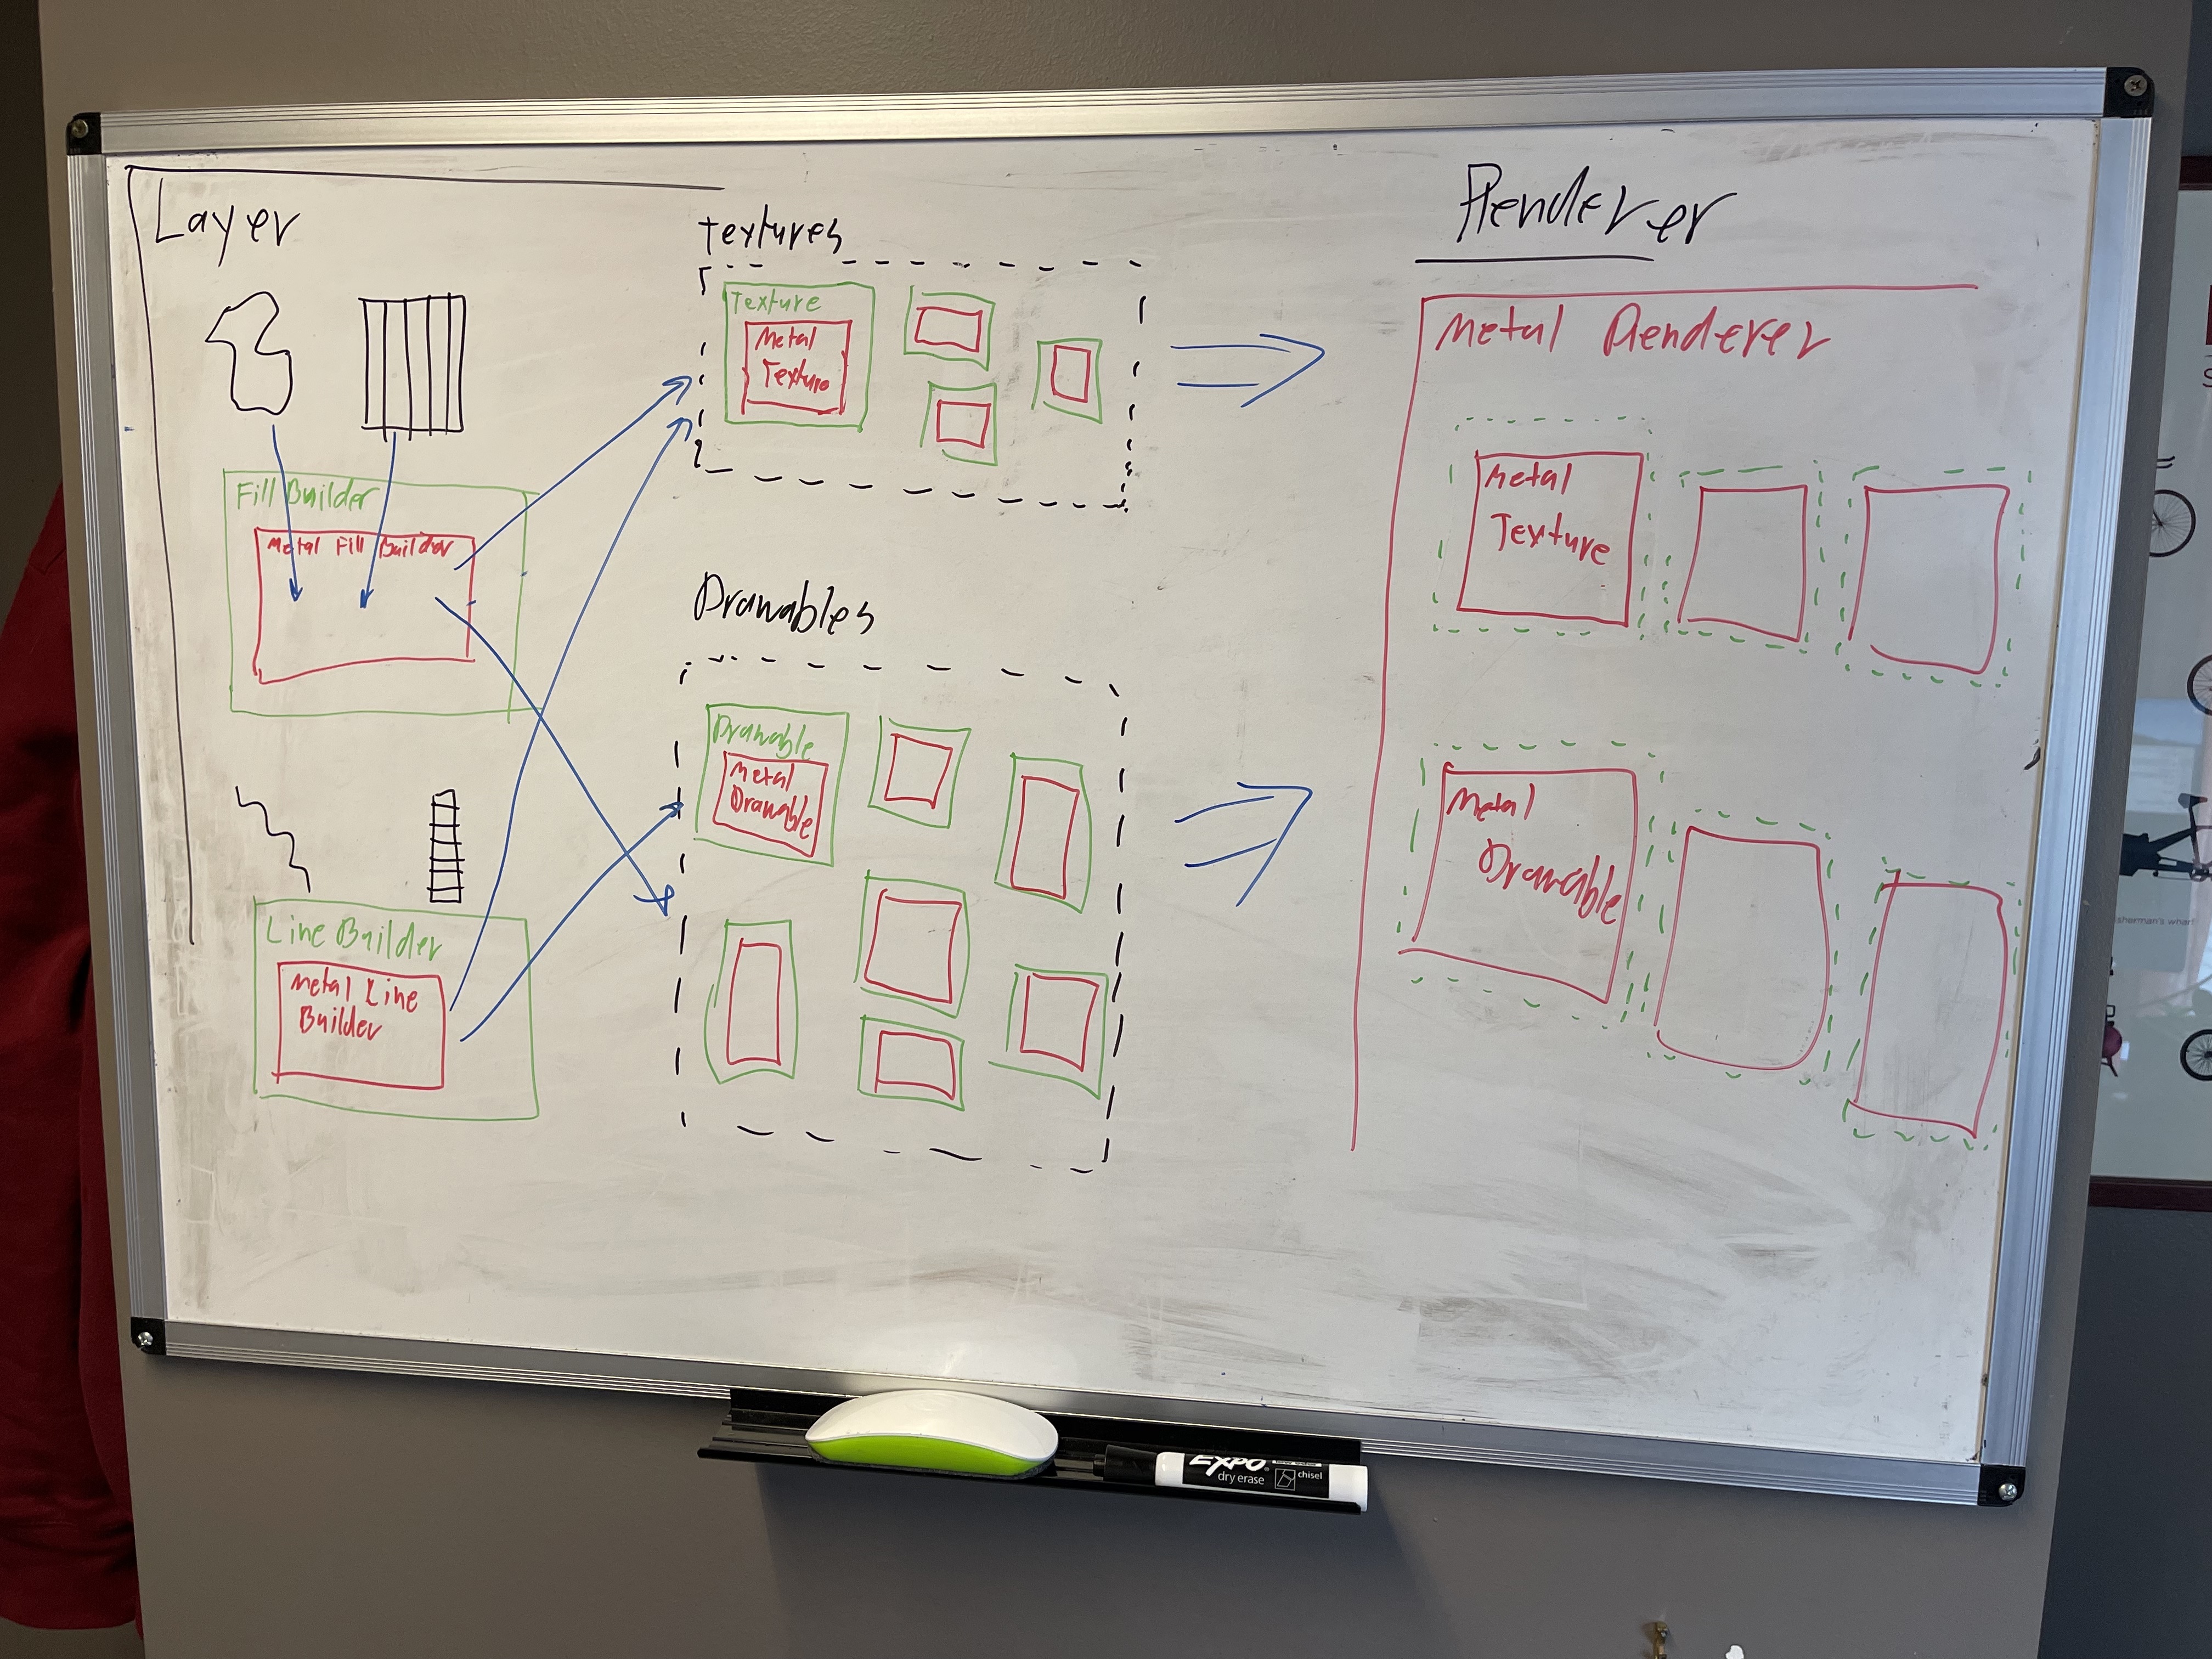 Layer
Fill Builder
Metal Fill Builder
Line Builder
Metal Line
Builder
Textures
Texture
Metal
Texture
Drawables
Drawable
Metal
Drawable
Renderer
Metal Renderer
Metal
Texture
Metal
Drawable
EXPO
dry erase
chisel
sherman's wharf